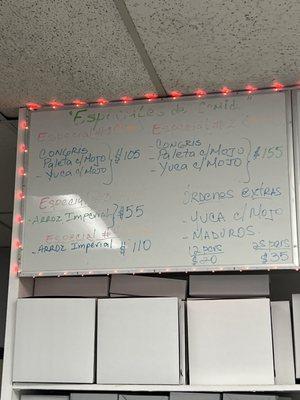 Especiales de Comida
Especial #
CONGRIS
Paleta c/MOJO
- Yuca c/MOJO
$105
Especial #
- CONGRIS
- Paleta c/MOJO
- Yuca c/MOJO
$155
Especial
- ARROZ Imperial
$55
Especial #
- ARROZ Imperial
$110
ÓRDENES EXTRAS
- YUCA c/MOJO
- MADUROS
12 pers
25 pers
$20
$35